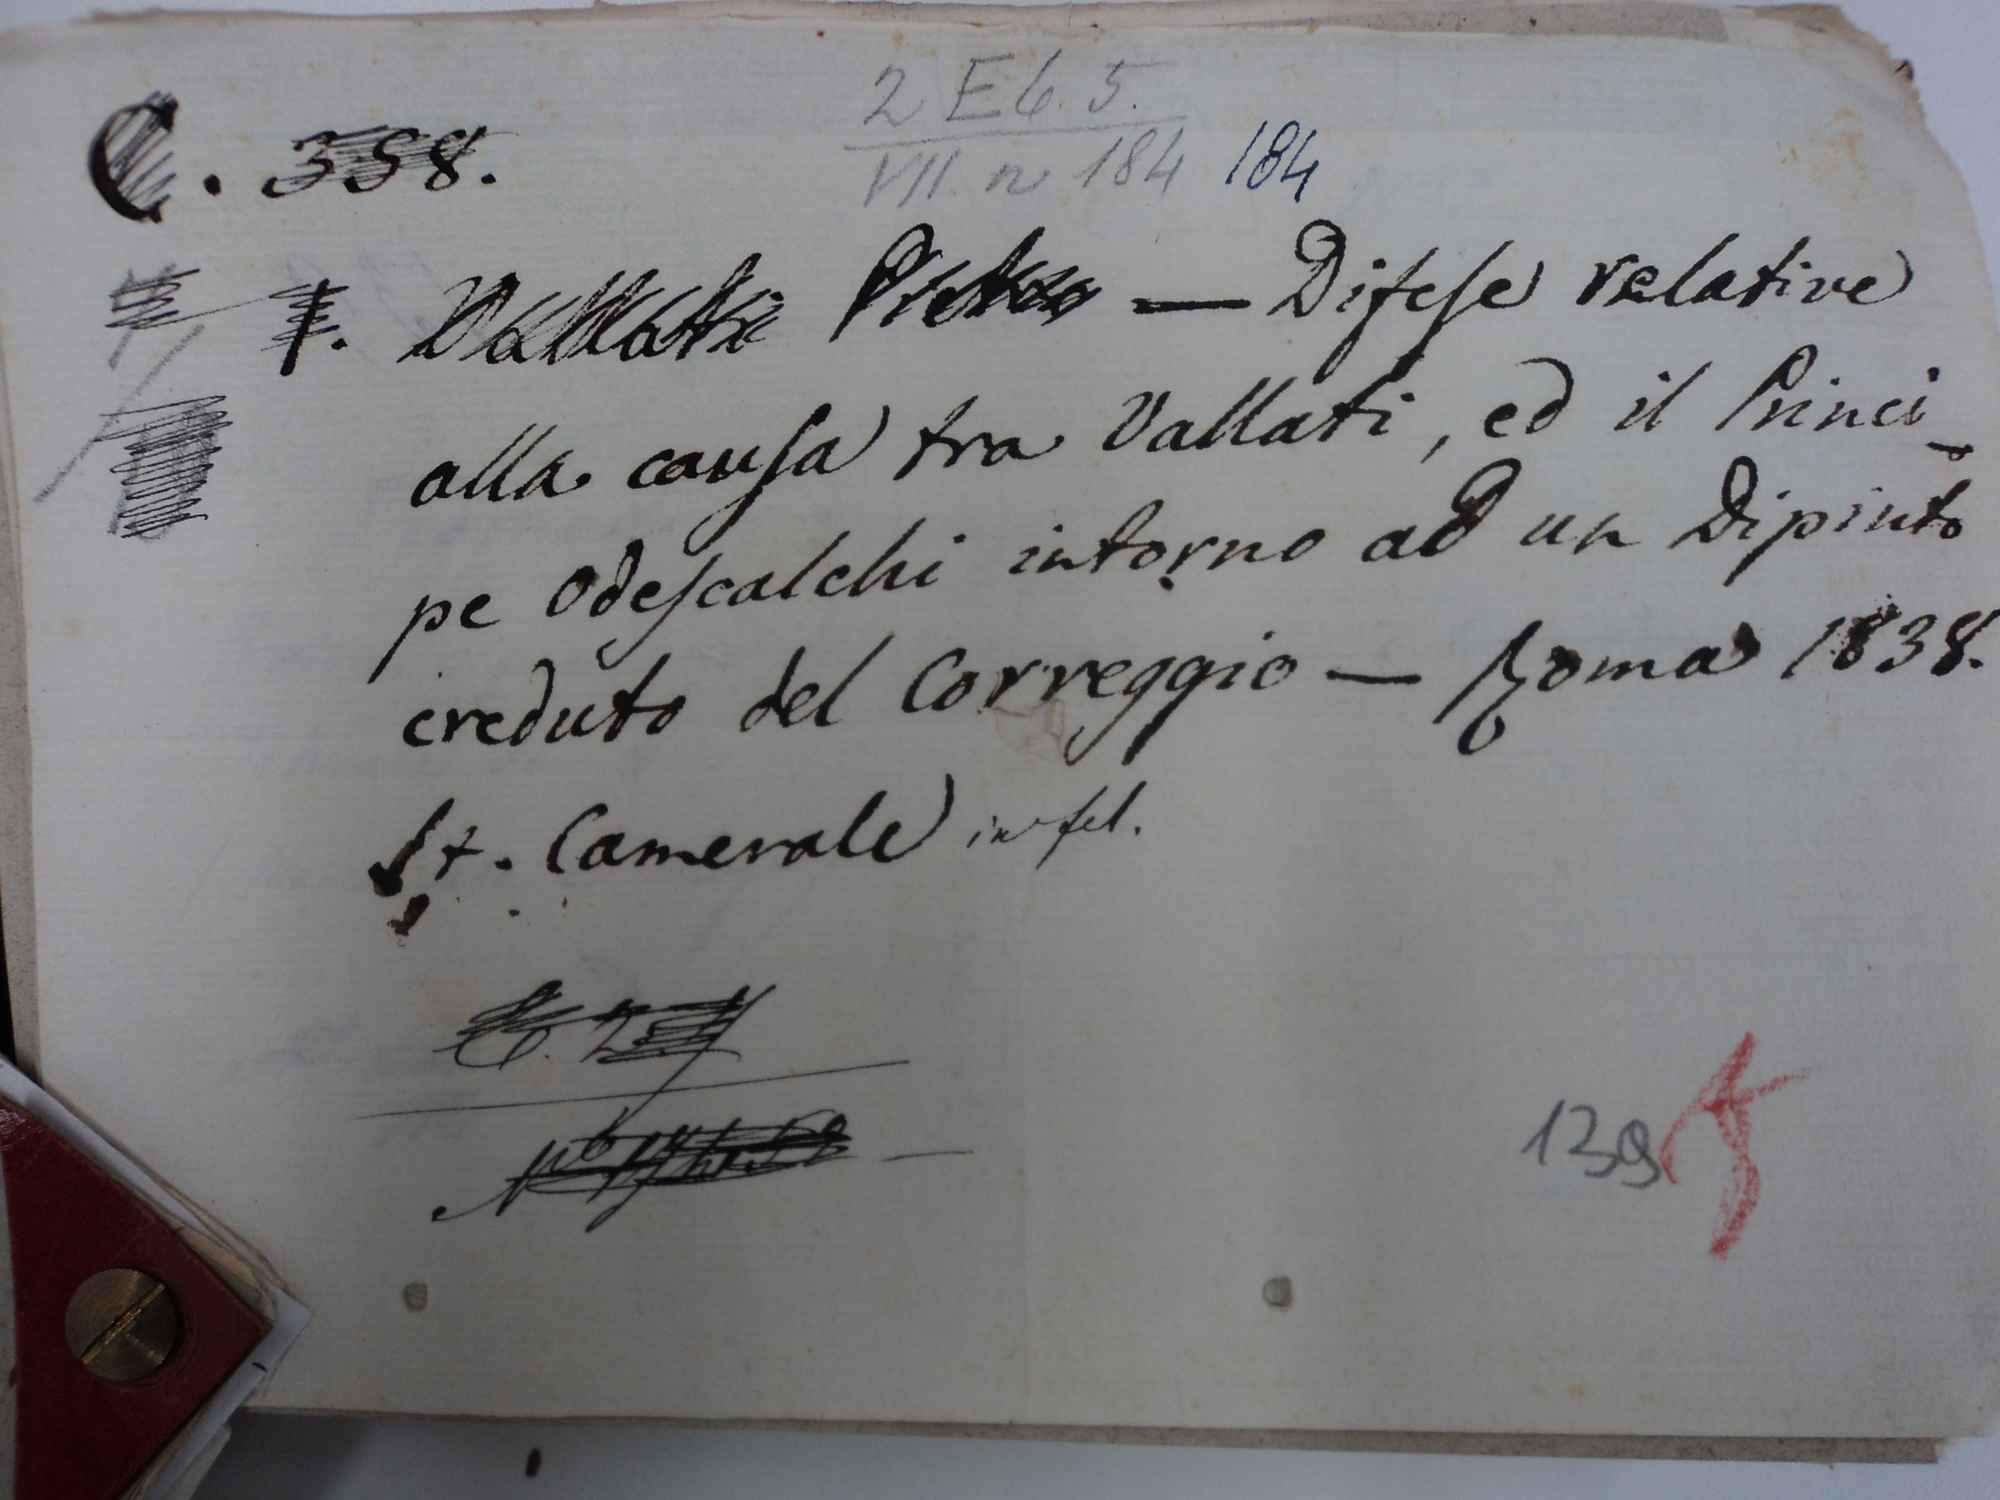 2 E 6. 5.
C. 338.
VII. n 184 184
Vallati Pietro — Difese relative
alla causa tra Vallati, ed il Princi-
pe Odescalchi intorno ad un Dipinto
creduto del Correggio — Roma 1838.
St. Camerale in fol.
139